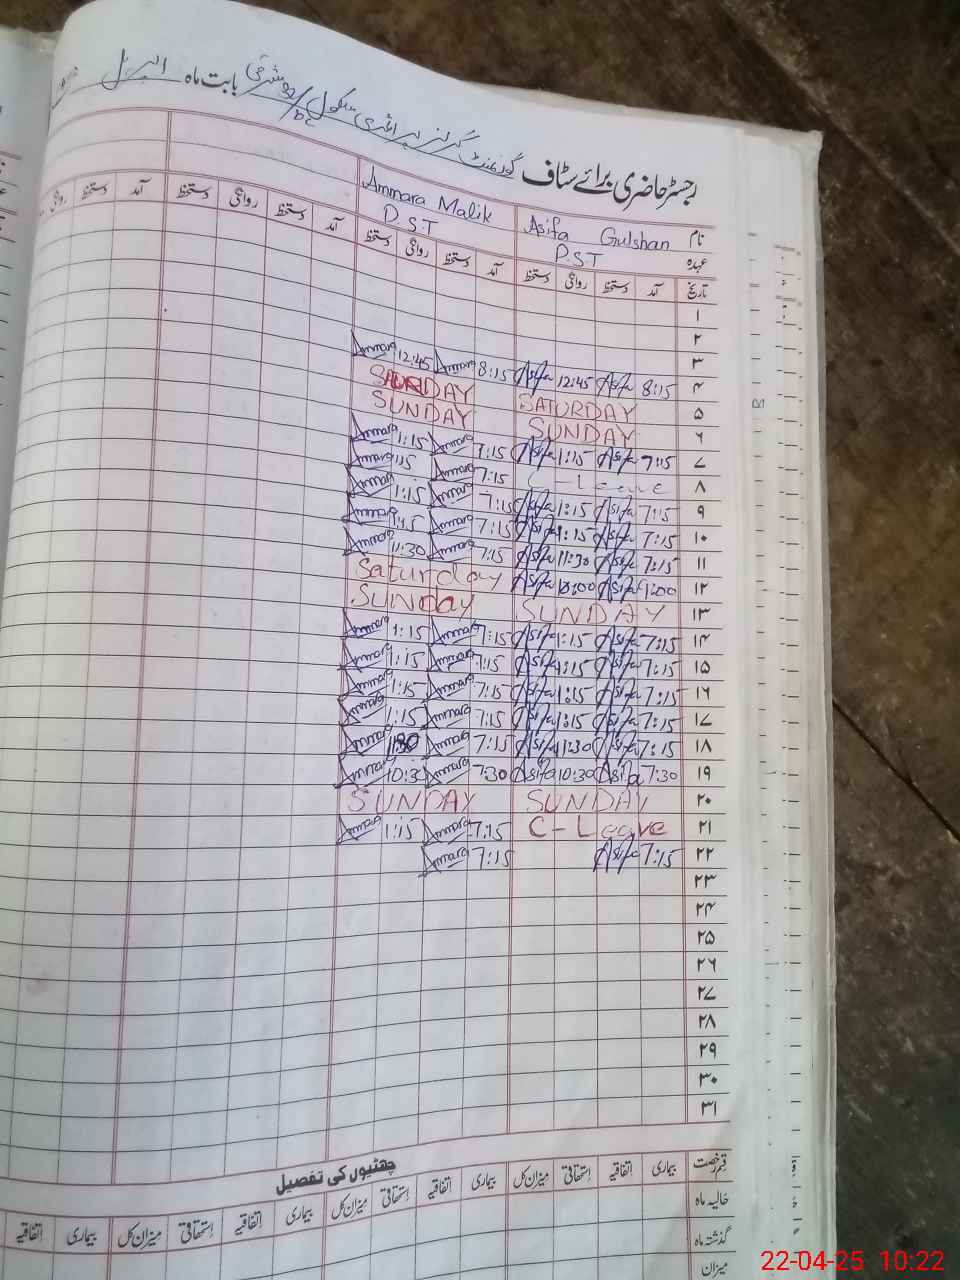 رجسٹر حاضری برائے سٹاف گورنمنٹ گرلز پرائمری سکول بابت ماہ اپریل
نام Asifa Gulshan Ammara Malik
عہدہ P.S.T P.S.T
تاریخ آمد دستخط روانگی دستخط آمد دستخط روانگی دستخط آمد دستخط روانگی دستخط آمد دستخط روانگی
۱
۲
۳
۴ 8:15 Asifa 12:45 Asifa 8:15 Ammara 12:45 Ammara
۵ SATURDAY
۶ SUNDAY SUNDAY
۷ 7:15 Asifa 1:15 Asifa 7:15 Ammara 1:15 Ammara
۸ C-Leave 7:15 Ammara Ammara
۹ 7:15 Asifa 1:15 Asifa 7:15 Ammara 1:15 Ammara
۱۰ 7:15 Asifa 1:15 Asifa 7:15 Ammara 1:15 Ammara
۱۱ 7:15 Asifa 11:30 Asifa 7:15 Ammara 11:30 Ammara
۱۲ Asifa Asifa Saturday
۱۳ SUNDAY SUNDAY
۱۴ 7:15 Asifa 1:15 Asifa 7:15 Ammara 1:15 Ammara
۱۵ 7:15 Asifa 1:15 Asifa 7:15 Ammara 1:15 Ammara
۱۶ 7:15 Asifa 1:15 Asifa 7:15 Ammara 1:15 Ammara
۱۷ 7:15 Asifa 1:15 Asifa 7:15 Ammara 1:15 Ammara
۱۸ 7:15 Asifa 11:30 Asifa 7:15 Ammara Ammara
۱۹ 7:30 Asifa 10:30 Asifa 7:30 Ammara 10:30 Ammara
۲۰ SUNDAY SUNDAY
۲۱ C-Leave 7:15 Ammara 1:15 Ammara
۲۲ 7:15 Asifa 7:15 Ammara
۲۳
۲۴
۲۵
۲۶
۲۷
۲۸
۲۹
۳۰
۳۱
چھٹیوں کی تفصیل
قسم رخصت بیماری اتفاقیہ استحقاقی میزان کل بیماری اتفاقیہ استحقاقی میزان کل بیماری اتفاقیہ استحقاقی میزان کل بیماری اتفاقیہ
حالیہ ماہ
گذشتہ ماہ
میزان
22-04-25 10:22